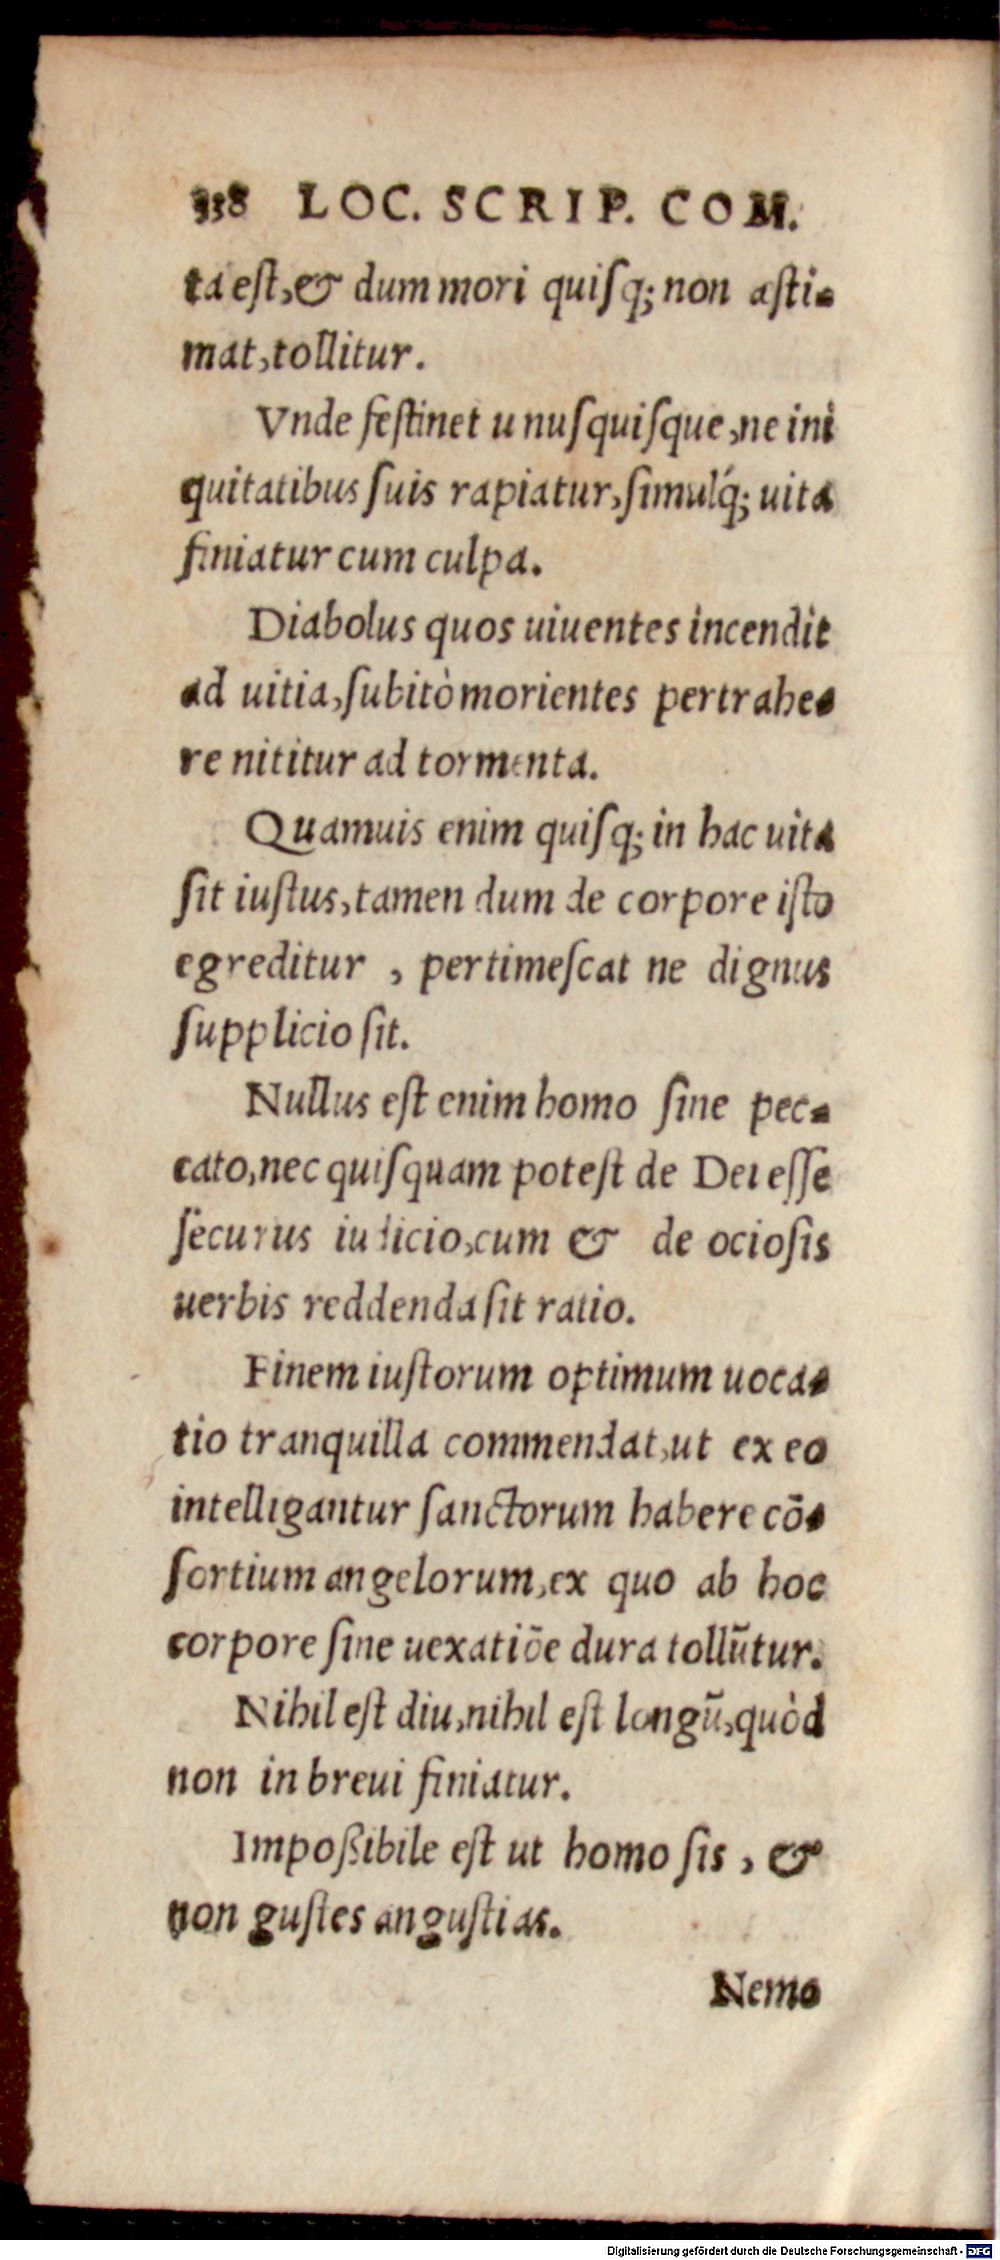 338 LOC. SCRIP. COM.
ta est, & dum mori quisq; non æsti-
mat, tollitur.
Vnde festinet unusquisque, ne ini
quitatibus suis rapiatur, simulq́; uita
finiatur cum culpa.
Diabolus quos uiuentes incendit
ad uitia, subitò morientes pertrahe-
re nititur ad tormenta.
Quamuis enim quisq; in hac uita
sit iustus, tamen dum de corpore isto
egreditur, pertimescat ne dignus
supplicio sit.
Nullus est enim homo sine pec-
cato, nec quisquam potest de Dei esse
securus iudicio, cum & de ociosis
uerbis reddenda sit ratio.
Finem iustorum optimum uoca-
tio tranquilla commendat, ut ex eo
intelligantur sanctorum habere cō-
sortium angelorum, ex quo ab hoc
corpore sine uexatiōe dura tollūtur.
Nihil est diu, nihil est longū, quòd
non in breui finiatur.
Impoßibile est ut homo sis, &
non gustes angustias.
Nemo
Digitalisierung gefördert durch die Deutsche Forschungsgemeinschaft - DFG